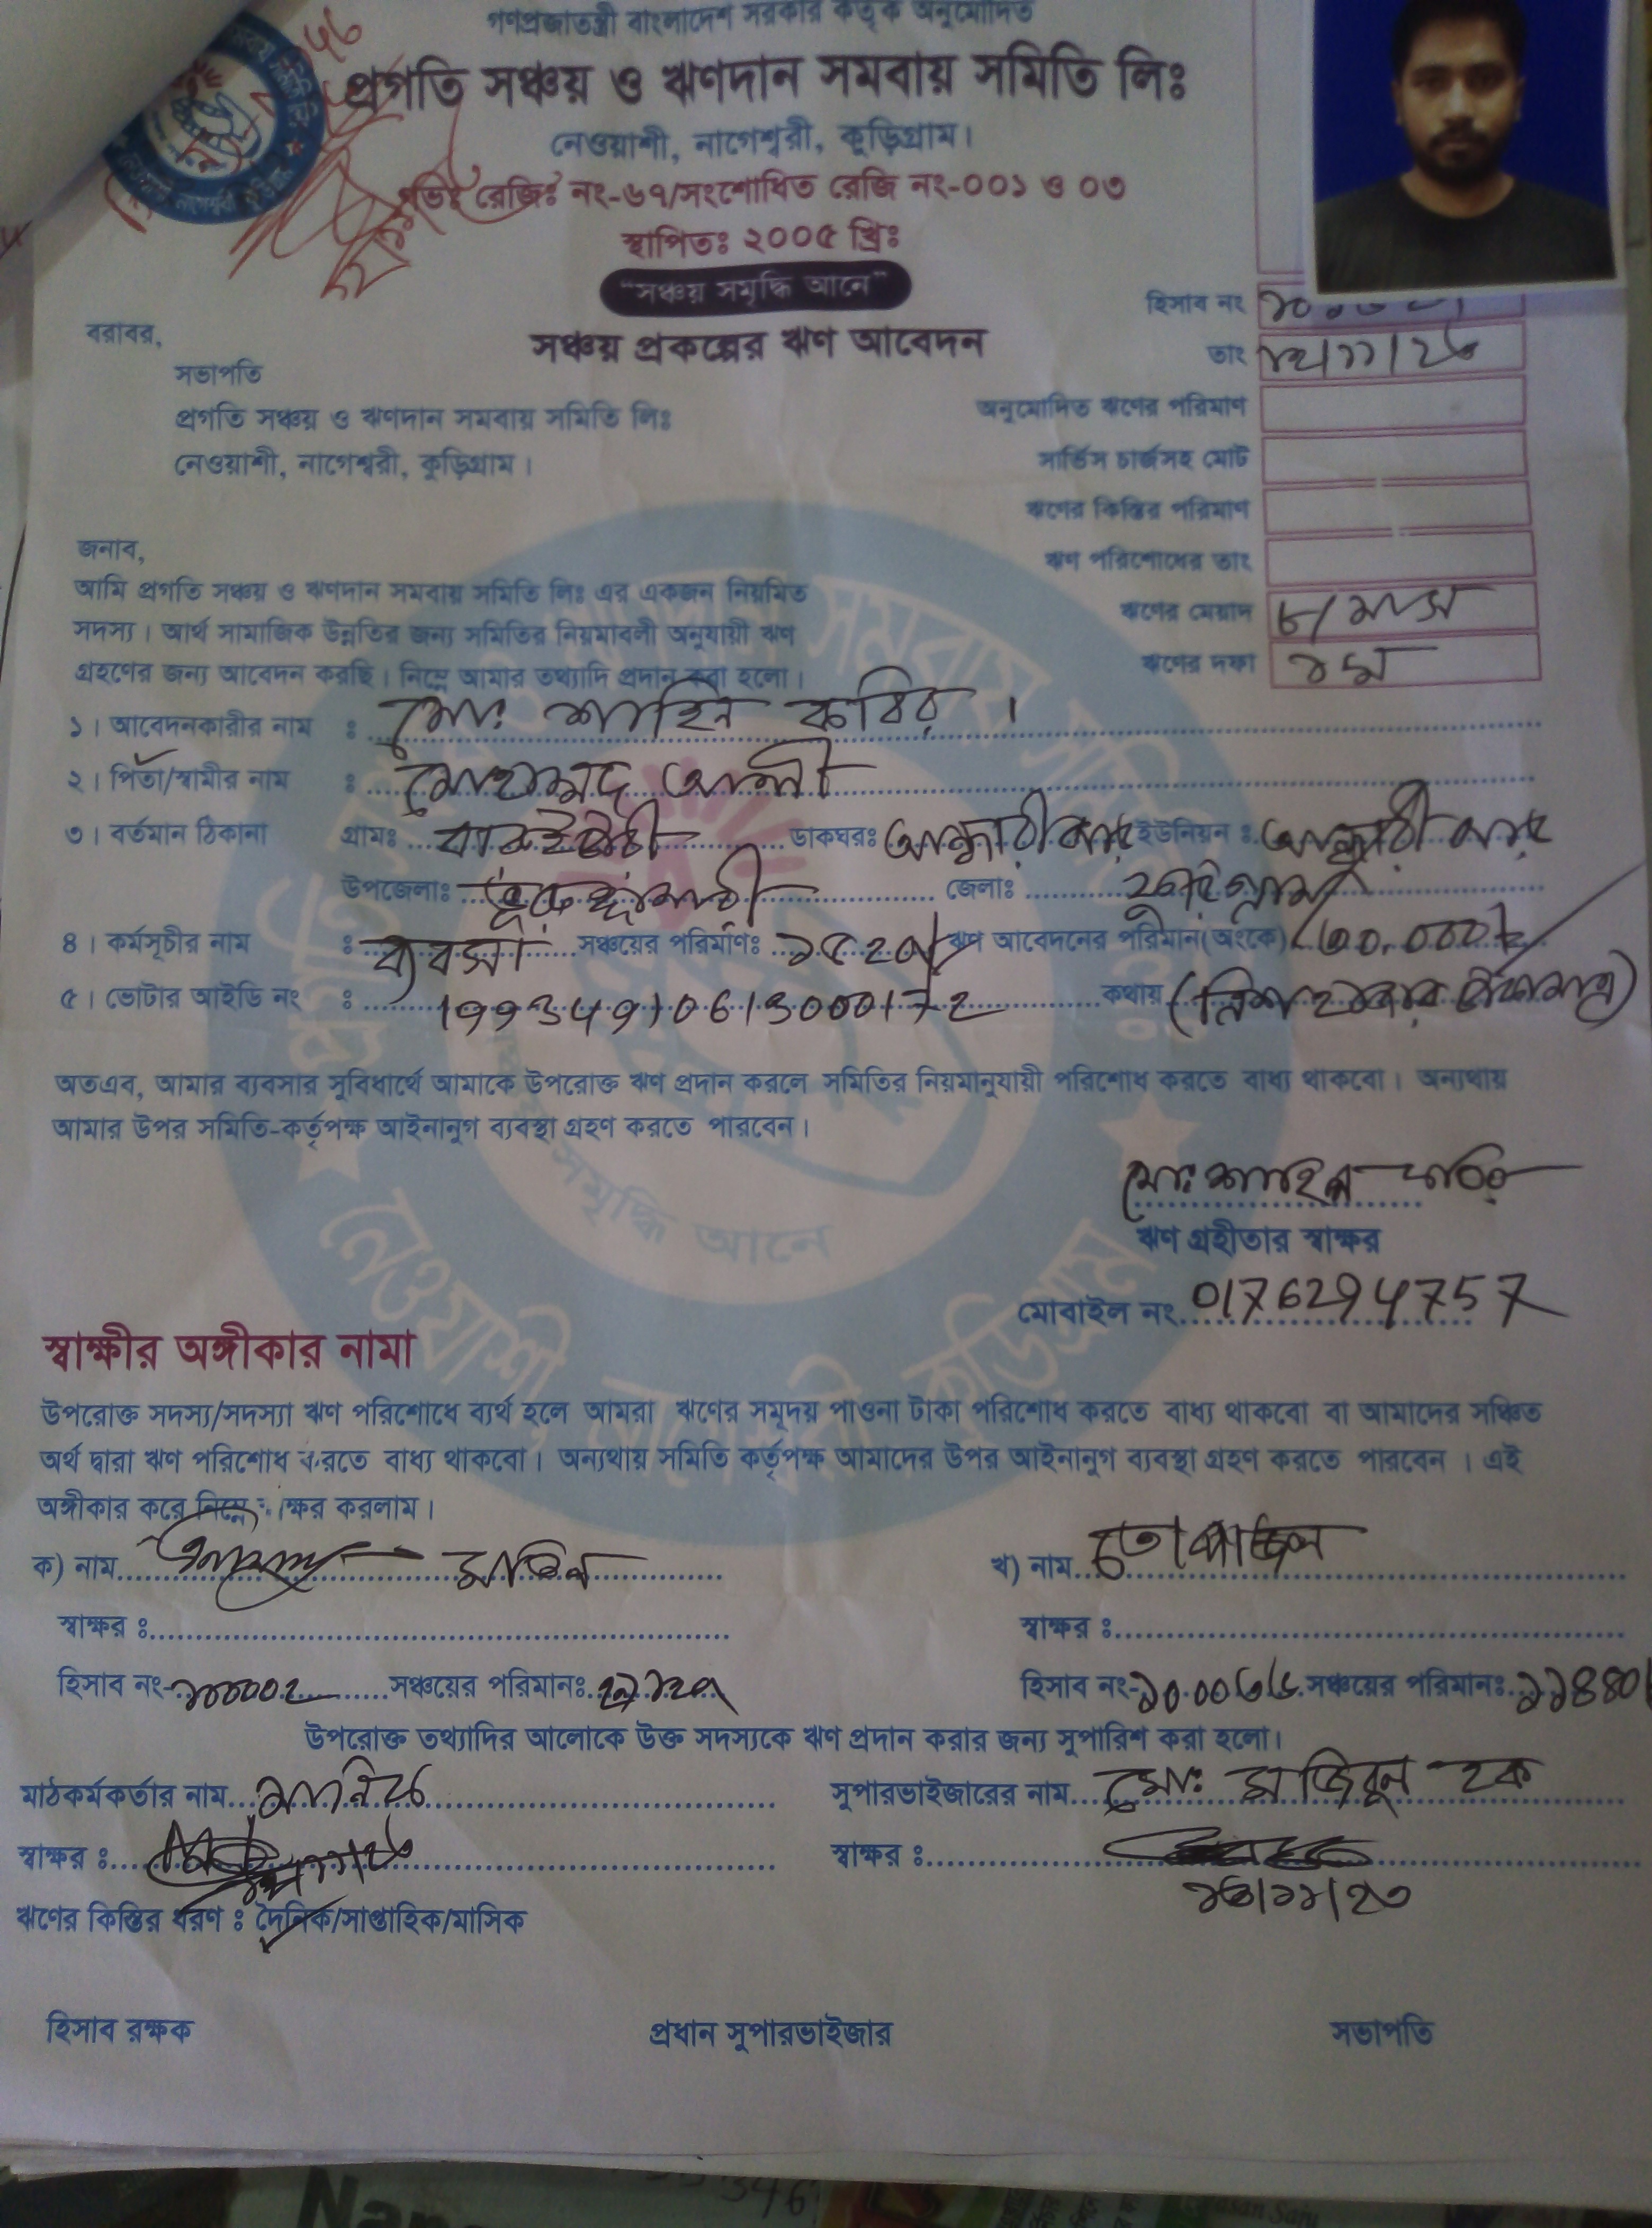 গণপ্রজাতন্ত্রী বাংলাদেশ সরকার কর্তৃক অনুমোদিত
প্রগতি সঞ্চয় ও ঋণদান সমবায় সমিতি লিঃ
নেওয়াশী, নাগেশ্বরী, কুড়িগ্রাম।
গভঃ রেজিঃ নং-৬৭/সংশোধিত রেজি নং-০০১ ও ০৩
স্থাপিতঃ ২০০৫ খ্রিঃ
"সঞ্চয় সমৃদ্ধি আনে"
সঞ্চয় প্রকল্পের ঋণ আবেদন
হিসাব নং
তাং
অনুমোদিত ঋণের পরিমাণ
সার্ভিস চার্জসহ মোট
ঋণের কিস্তির পরিমাণ
ঋণ পরিশোধের তাং
ঋণের মেয়াদ ৮/মাস
ঋণের দফা ১ম
বরাবর,
সভাপতি
প্রগতি সঞ্চয় ও ঋণদান সমবায় সমিতি লিঃ
নেওয়াশী, নাগেশ্বরী, কুড়িগ্রাম।
জনাব,
আমি প্রগতি সঞ্চয় ও ঋণদান সমবায় সমিতি লিঃ এর একজন নিয়মিত
সদস্য। আর্থ সামাজিক উন্নতির জন্য সমিতির নিয়মাবলী অনুযায়ী ঋণ
গ্রহণের জন্য আবেদন করছি। নিম্নে আমার তথ্যাদি প্রদান করা হলো।
১। আবেদনকারীর নাম ঃ মোঃ শাহিন কবির।
২। পিতা/স্বামীর নাম ঃ মোহাম্মদ আলী
৩। বর্তমান ঠিকানা গ্রামঃ ডাকঘরঃ আন্ধারীঝাড় ইউনিয়ন ঃ আন্ধারীঝাড়
উপজেলাঃ ভূরুঙ্গামারী জেলাঃ কুড়িগ্রাম
৪। কর্মসূচীর নাম ঃ ব্যবসা সঞ্চয়ের পরিমাণঃ ১৫২০/ ঋণ আবেদনের পরিমান(অংকে) ৩০,০০০/
৫। ভোটার আইডি নং ঃ 19934910613000172 কথায় (ত্রিশ হাজার টাকা মাত্র)
অতএব, আমার ব্যবসার সুবিধার্থে আমাকে উপরোক্ত ঋণ প্রদান করলে সমিতির নিয়মানুযায়ী পরিশোধ করতে বাধ্য থাকবো। অন্যথায়
আমার উপর সমিতি-কর্তৃপক্ষ আইনানুগ ব্যবস্থা গ্রহণ করতে পারবেন।
মোঃ শাহিন কবির
ঋণ গ্রহীতার স্বাক্ষর
মোবাইল নং 0176294757
স্বাক্ষীর অঙ্গীকার নামা
উপরোক্ত সদস্য/সদস্যা ঋণ পরিশোধে ব্যর্থ হলে আমরা ঋণের সমূদয় পাওনা টাকা পরিশোধ করতে বাধ্য থাকবো বা আমাদের সঞ্চিত
অর্থ দ্বারা ঋণ পরিশোধ করতে বাধ্য থাকবো। অন্যথায় সমিতি কর্তৃপক্ষ আমাদের উপর আইনানুগ ব্যবস্থা গ্রহণ করতে পারবেন। এই
অঙ্গীকার করে নিম্নে ক্ষর করলাম।
ক) নাম খ) নাম
স্বাক্ষর ঃ স্বাক্ষর ঃ
হিসাব নং- ১০০০০২ সঞ্চয়ের পরিমানঃ হিসাব নং- সঞ্চয়ের পরিমানঃ ১১৪৪০/
উপরোক্ত তথ্যাদির আলোকে উক্ত সদস্যকে ঋণ প্রদান করার জন্য সুপারিশ করা হলো।
মাঠকর্মকর্তার নাম সুপারভাইজারের নাম মোঃ মজিবুল হক
স্বাক্ষর ঃ স্বাক্ষর ঃ
ঋণের কিস্তির ধরণ ঃ দৈনিক/সাপ্তাহিক/মাসিক
হিসাব রক্ষক প্রধান সুপারভাইজার সভাপতি